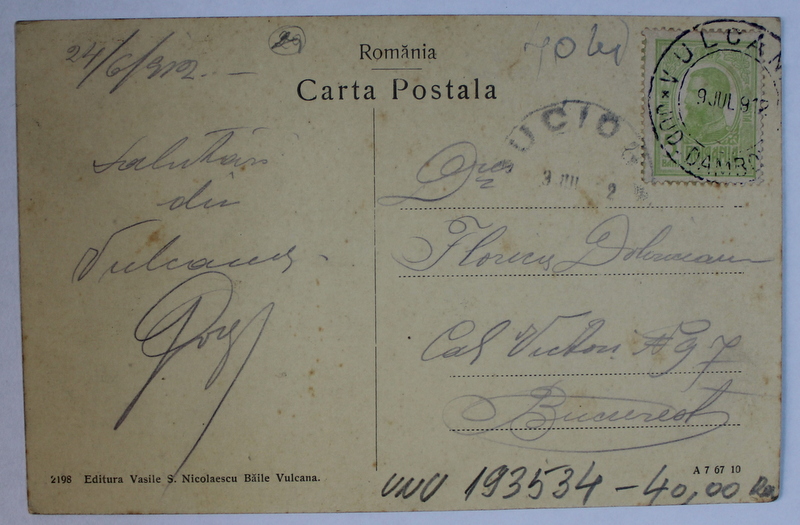 24/6/912. –
29
România
70 lei
Carta Postala
VULCAN
9 JUL 912
JUD. DÂMBO
UCIO
3 JUL 2
salutări
din
Vulcana
Florica
Cal Victori Nº 97
Bucuresti
2198 Editura Vasile S. Nicolaescu Băile Vulcana.
A 7 67 10
193534 – 40,00